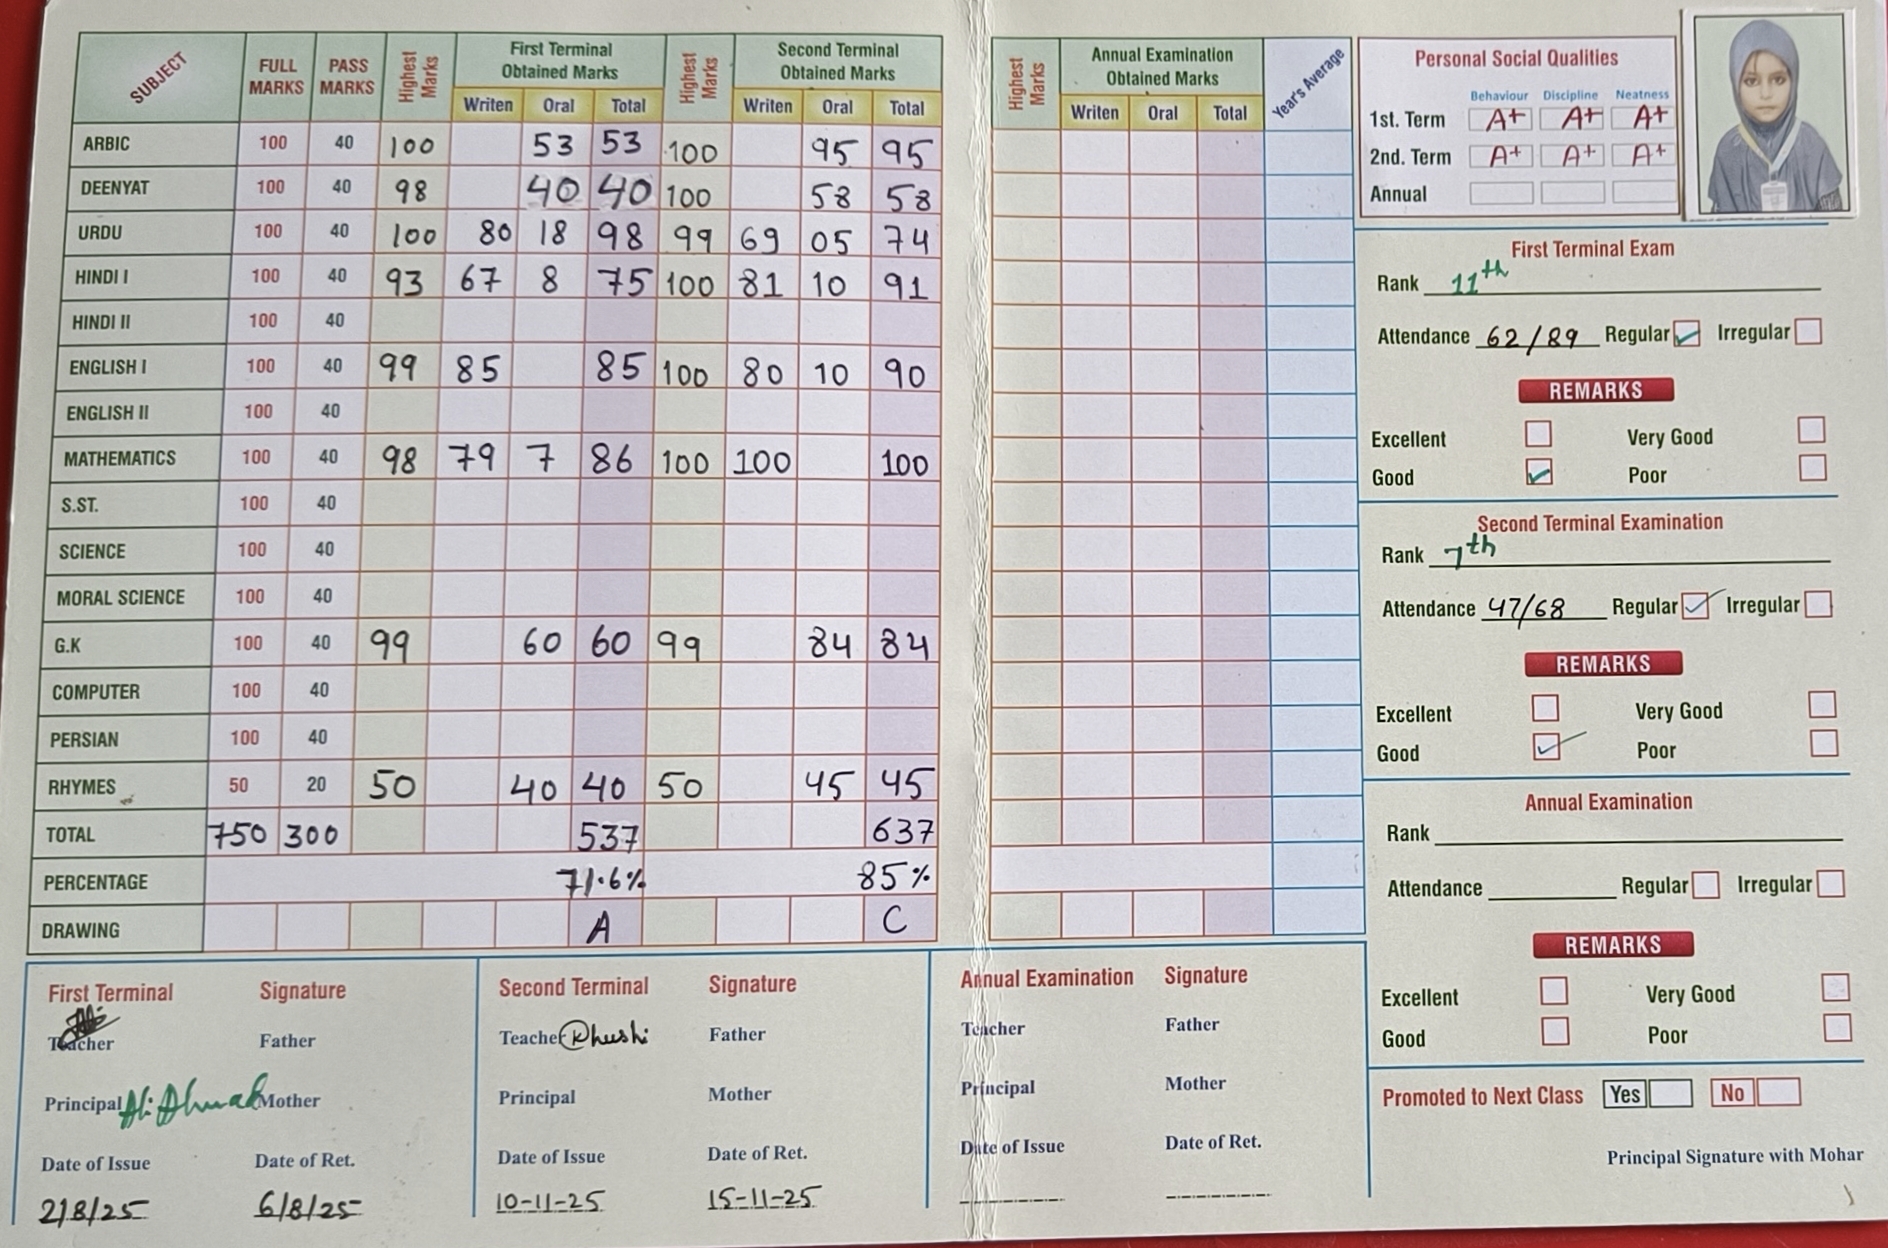 SUBJECT FULL MARKS PASS MARKS Highest Marks First Terminal Obtained Marks Highest Marks Second Terminal Obtained Marks Highest Marks Annual Examination Obtained Marks Year's Average
Writen Oral Total Writen Oral Total Writen Oral Total
ARBIC 100 40 100 53 53 100 95 95
DEENYAT 100 40 98 40 40 100 58 58
URDU 100 40 100 80 18 98 99 69 05 74
HINDI I 100 40 93 67 8 75 100 81 10 91
HINDI II 100 40
ENGLISH I 100 40 99 85 85 100 80 10 90
ENGLISH II 100 40
MATHEMATICS 100 40 98 79 7 86 100 100 100
S.ST. 100 40
SCIENCE 100 40
MORAL SCIENCE 100 40
G.K 100 40 99 60 60 99 84 84
COMPUTER 100 40
PERSIAN 100 40
RHYMES 50 20 50 40 40 50 45 45
TOTAL 750 300 537 637
PERCENTAGE 71.6% 85%
DRAWING A C
Personal Social Qualities
Behaviour Discipline Neatness
1st. Term A+ A+ A+
2nd. Term A+ A+ A+
Annual
First Terminal Exam
Rank 11th
Attendance 62/89 Regular Irregular
REMARKS
Excellent Very Good
Good Poor
Second Terminal Examination
Rank 7th
Attendance 47/68 Regular Irregular
REMARKS
Excellent Very Good
Good Poor
Annual Examination
Rank
Attendance Regular Irregular
REMARKS
Excellent Very Good
Good Poor
Promoted to Next Class Yes No
Principal Signature with Mohar
First Terminal Signature
Teacher Father
Principal Ali Ahmad Mother
Date of Issue Date of Ret.
2/8/25 6/8/25
Second Terminal Signature
Teacher Khushi Father
Principal Mother
Date of Issue Date of Ret.
10-11-25 15-11-25
Annual Examination Signature
Teacher Father
Principal Mother
Date of Issue Date of Ret.